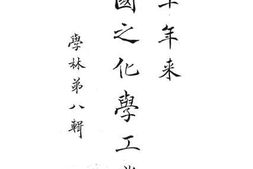 十年来
國之化學工
學林第八輯